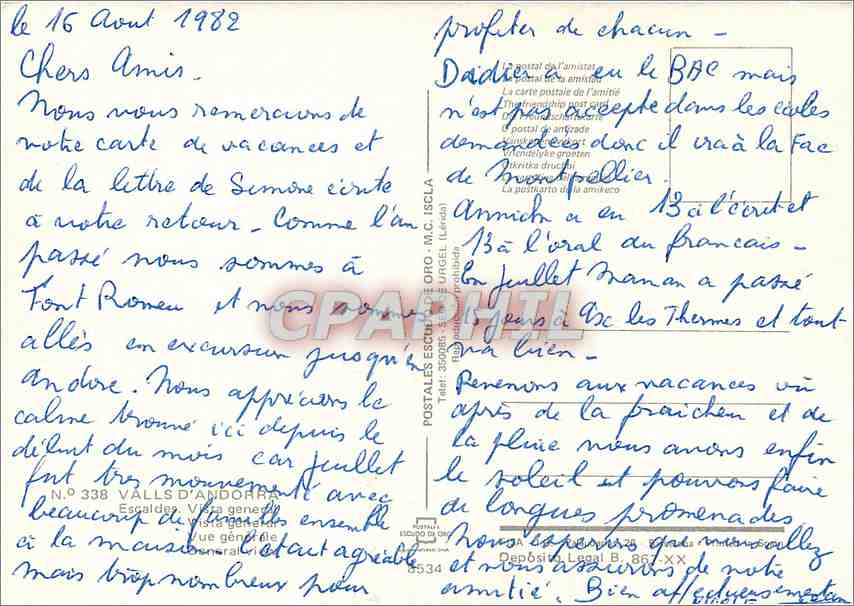 le 16 Aout 1982
Chers Amis.
Nous vous remercions de
votre carte de vacances et
de la lettre de Simone écrite
à votre retour. Comme l'an
passé nous sommes à
Font Romeu et nous sommes
allés en excursion jusqu'en
andore. Nous apprécions le
calme trouvé ici depuis le
début du mois car juillet
fut tres mouvementé avec
beaucoup de familles ensemble
à la maison. C'était agréable
mais trop nombreux pour
profiter de chacun -
Didier a eu le BAC mais
n'est pas accepté dans les écoles
demandées donc il ira à la Fac
de Montpellier.
Annick a eu 13 à l'écrit et
13 à l'oral du francais -
En Juillet Maman a passé
15 jours à Ax les Thermes et tout
va bien -
Revenons aux vacances où
après de la fraicheur et de
la pluie nous avons enfin
le soleil et pouvons faire
de longues promenades
Nous espérons que vous allez
et nous assurons de notre
amitié. Bien affectueusement
La postal de l'amistat
La postal de la amistad
La carte postale de l'amitié
The friendship post card
Die Freundschaftskarte
Vriendelyke groeten
Otkritka druzhbi
La postkarto de la amikeco
POSTALES ESCUDO DE ORO - M.C. ISCLA
Telef: 350085 - SEO DE URGEL (Lérida)
Reproducción prohibida
N.º 338 VALLS D'ANDORRA
Escaldes. Vista general
Vista general
Vue générale
General
POSTALES
ESCUDO DE ORO
8534
Depósito Legal B. 867-XX
CPAPHIL